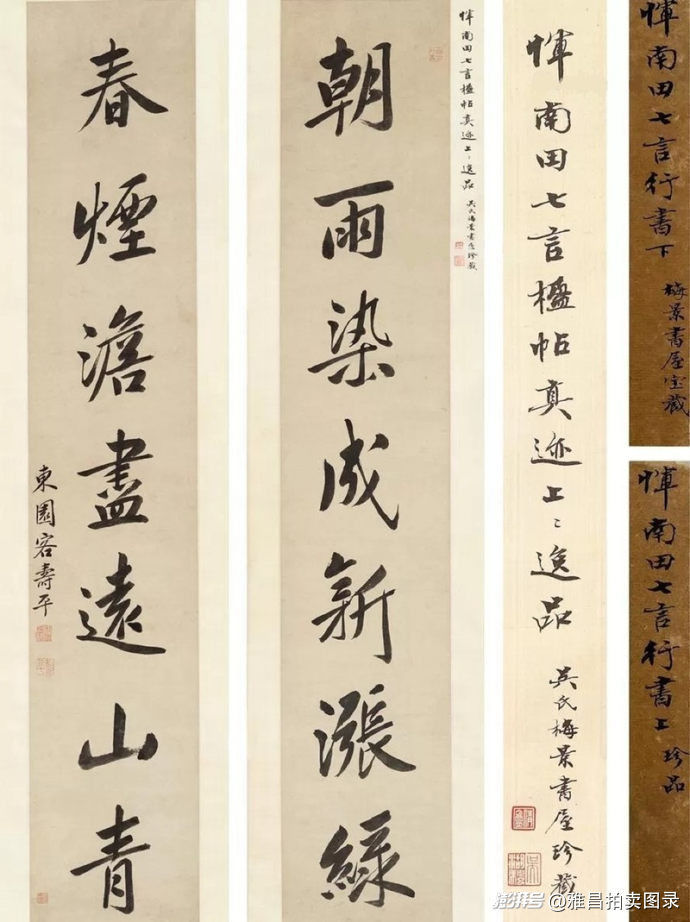 恽南田七言行書下
梅景書屋宝藏
恽南田七言行書上
珍品
恽南田七言楹帖真迹上〻逸品
吳氏梅景書屋珍藏
恽南田七言楹帖真迹上〻逸品
吳氏梅景書屋珍藏
朝雨染成新漲綠
春煙澹盡遠山青
東園客壽平
澎湃号@雅昌拍卖图录